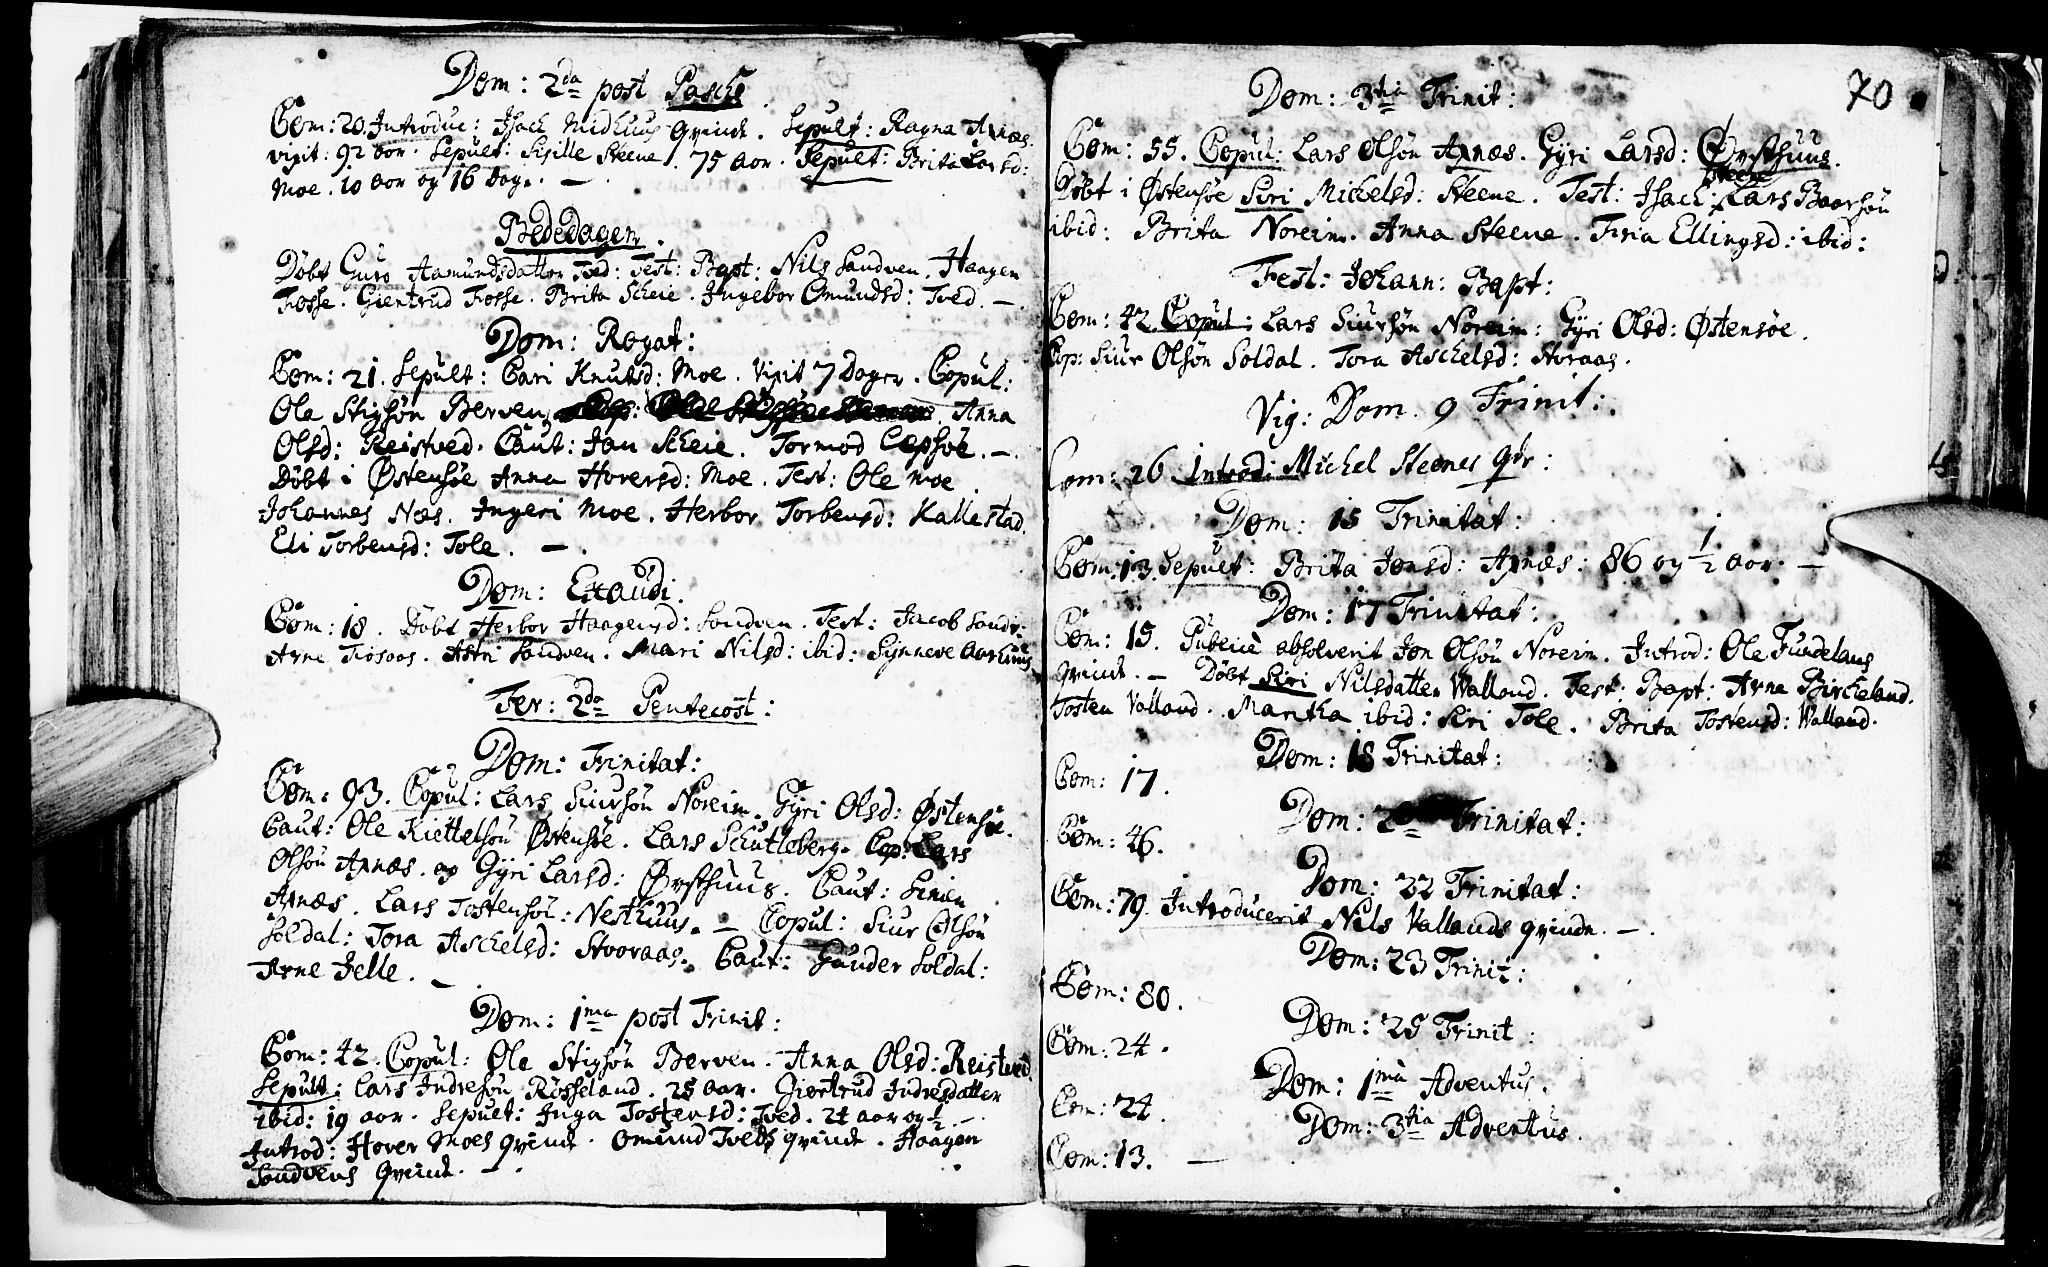 Dom: 2da post Pasch:
Com: 20. Introduc: Isach Midthuus qvinde. Sepult: Ragna Axnæs.
vixit: 92 aar. Sepult: Sisille Steene. 75 aar. Sepult: Brita Larsd:
Moe. 10 aar og 16 dage. —
Bededagen.
Døbt Guro Aamundsdatter Tved: Test: Bapt: Nils Sandven. Haagen
Fosse. Giertrud Fosse. Brita Scheie. Ingebor Omundsd: Tved. —
Dom: Rogat:
Com: 21. Sepult: Cari Knutsd: Moe. Vixit 7 Dager. Copul:
Ola Stigsøn Berven, Anna
Olsd: Reistved. Caut: Jan Scheie. Tormod Lepsøe. —
Døbt i Østensøe Anna Hoversd: Moe. Test: Ole Moe
Johannes Næs. Ingeri Moe. Herbor Torbensd: Kallestad.
Eli Torbensd: Tole. —.
Dom: Exaudi.
Com: 18. Døbt Herbor Haagensd: Sandven. Test: Jacob Sandv:
Arne Tiosaas. Astri Sandven. Mari Nilsd: ibid: Synneve Aarhuus
Fer: 2da Pentecost:
Dom: Trinitat:
Com: 93. Copul: Lars Siursøn Noreim. Gyri Olsd: Østensøe.
Caut: Ole Kiettelsøn Østensøe. Lars Schutleberg. Cop: Lars
Olsøn Axnæs. og Gyri Larsd: Ørsthuus. Caut: Simen
Axnæs. Lars Tostensøn: Nesthuus. — Copul: Siur Olsøn
Soldal: Tora Aschelsd: Stooraas. Caut: Gunder Soldal:
Arne Jelle. —.
Dom: 1ma post Trinit:
Com: 42. Copul: Ole Stigsøn Berven. Anna Olsd: Reistved.
Sepult: Lars Indresøn Røsseland. 25 aar. Giertrud Indresdatter
ibid: 19 aar. Sepult: Inga Tostensd: Tved. 24 aar og ½. —
Introd: Hover Moes qvinde. Omund Tveds qvinde. Haagen
Sandvens Qvinde. —.
70
Dom: 3tia Trinit:
Com: 55. Copul: Lars Olsøn Axnæs. Gyri Larsd: Ørsthuus.
Steene
Døbt i Østensøe Siri Michelsd: Steene. Test: Isach: Lars Baarsøn
ibid: Brita Noreim. Anna Steene. Siria Ellingsd: ibid:
Fest: Johann: Bapt:
Com: 42. Copul: Lars Siursøn Noreim: Gyri Olsd: Østensøe.
Cop: Siur Olsøn Soldal. Tora Aschelsd: Storaas.
Vig: Dom. 9 Trinit:
Com: 26. Introd: Michel Steenes qv:
Dom: 15 Trinitat:
Com: 13. Sepult: Brita Jonsd: Axnæs: 86 og ½ aar. —
Dom: 17 Trinitat:
Com: 15. Publicè absolverit Jon Olsøn Noreim. Introd: Ole Fundelans
Qvinde. — Døbt Siri Nilsdatter Walland. Test: Bapt: Arne Bircheland.
Tosten Valland. Maritha ibid: Siri Tole. Brita Tostensd: Walland.
Dom: 18 Trinitat:
Com: 17.
Dom: Trinitat:
Com: 46.
Dom: 22 Trinitat:
Com: 79. Introducerit Nils Vallands qvinde. —.
Dom: 23 Trinit:
Com: 80.
Dom: 25 Trinit:
Com: 24.
Dom: 1ma Adventus.
Com: 24.
Dom: 3tia Adventus.
Com: 13. —